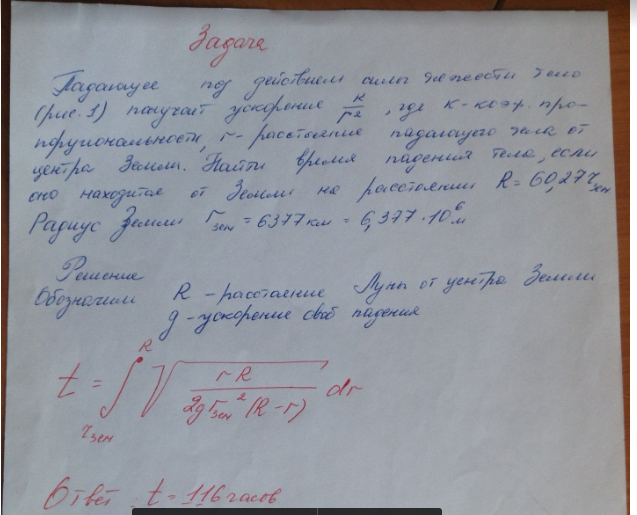 Задача
Падающее под действием силы тяжести тело
(рис. 1) получает ускорение k/r², где k-коэф. про-
порциональности, r-расстояние падающего тела от
центра Земли. Найти время падения тела, если
оно находится от Земли на расстоянии R = 60,27 rзем
Радиус Земли rзем = 6377 км = 6,377 · 10⁶ м
Решение
Обозначим R - расстояние Луны от центра Земли
g - ускорение своб падения
t = ∫_{rзем}^{R} √(rR / (2g rзем² (R-r))) dr
Ответ: t = 116 часов